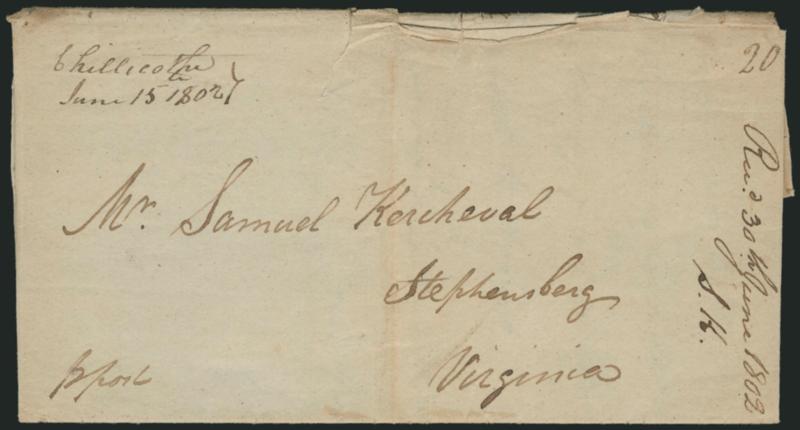 Chillicothe
June 15th 1802
20
Mr. Samuel Kercheval
Stephensberg
Virginia
p post
Recd. 30th June 1802
S. K.